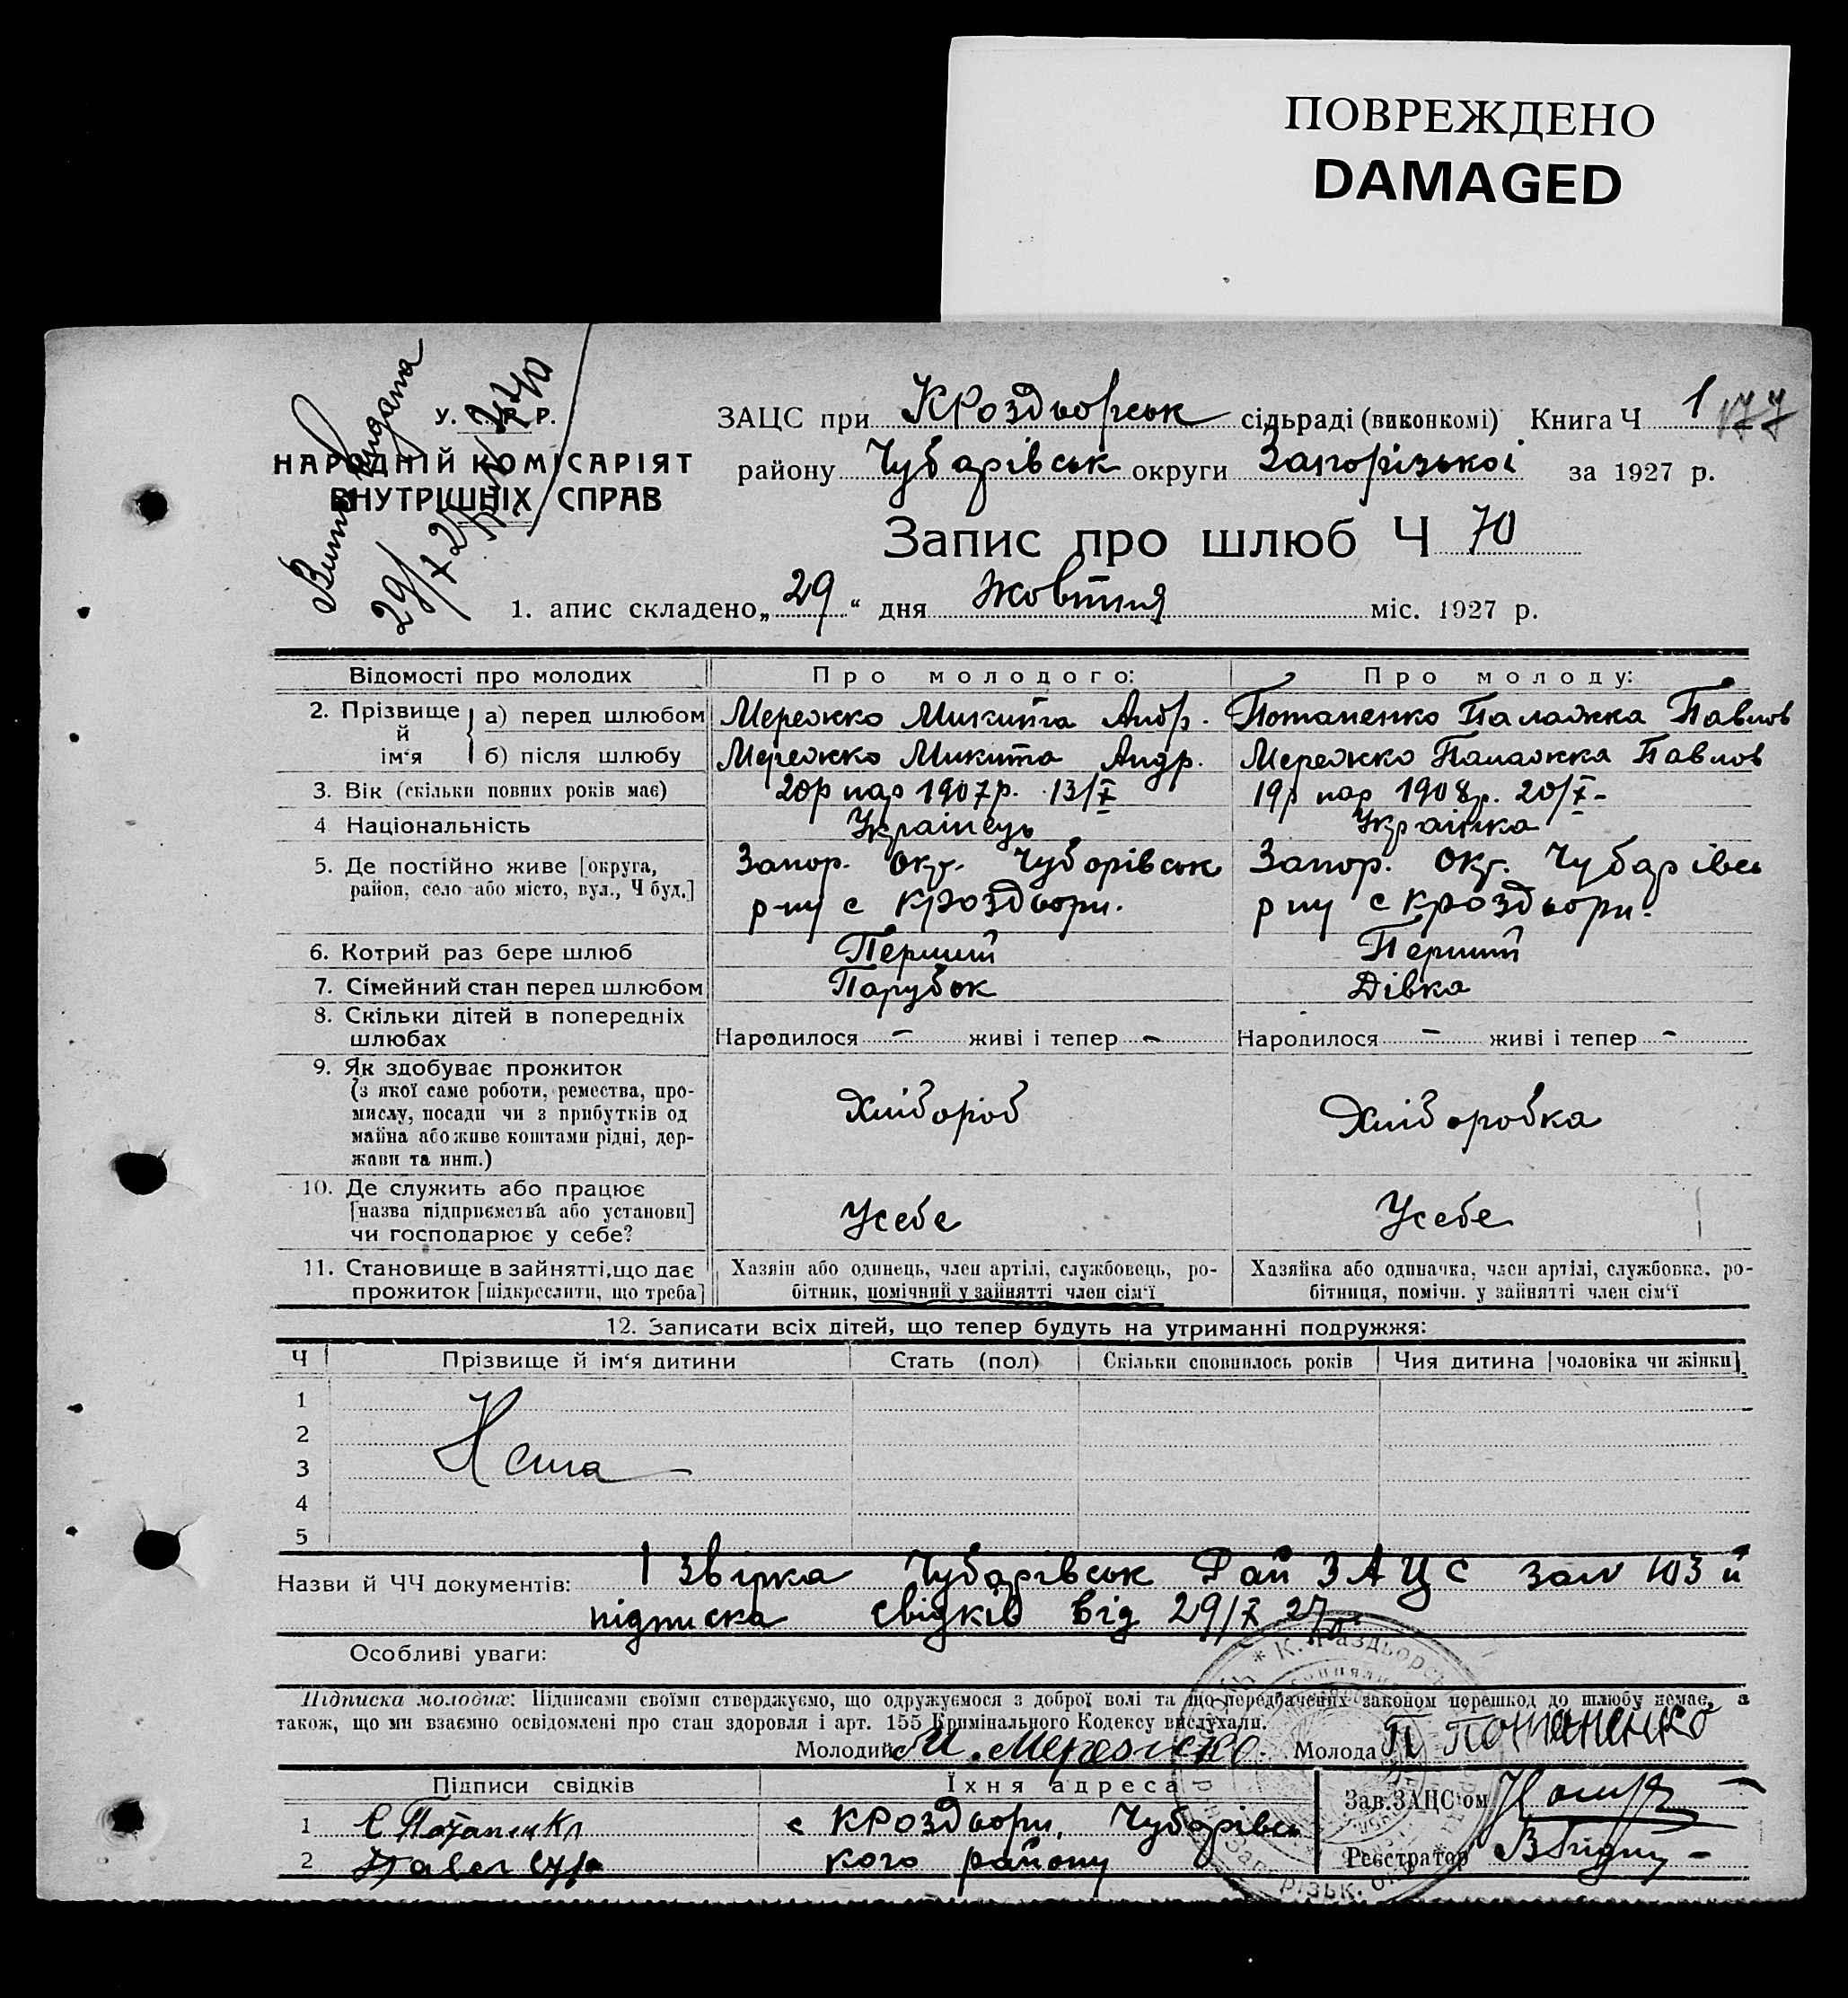 ПОВРЕЖДЕНО
DAMAGED
У. С. Р. Р.
НАРОДНІЙ КОМІСАРІЯТ
ВНУТРІШНІХ СПРАВ
29/X 27
ЗАЦС при КРоздворськ сільраді (виконкомі) Книга Ч 1 177
району Чубарівськ округи Запорізької за 1927 р.
Запис про шлюб Ч 70
1. апис складено „29“ дня жовтня міс. 1927 р.
Відомості про молодих Про молодого: Про молоду:
2. Прізвище й ім‘я а) перед шлюбом Мережко Микита Андр. Потапенко Палажка Павлов
б) після шлюбу Мережко Микита Андр. Мережко Палажка Павлов
3. Вік (скільки повних років має) 20р нар 1907р. 13/X 19р нар 1908р. 20/X-
4 Національність Українець Українка
5. Де постійно живе [округа, район, село або місто, вул., Ч буд.] Запор. окр. Чубарівськ Запор. окр. Чубарівсь
р-ну с КРоздвори. р ну с КРоздвори.
6. Котрий раз бере шлюб Перший Перший
7. Сімейний стан перед шлюбом Парубок Дівка
8. Скільки дітей в попередніх шлюбах Народилося - живі і тепер - Народилося - живі і тепер -
9. Як здобуває прожиток
(з якої саме роботи, ремества, про-
мислу, посади чи з прибутків од
майна або живе коштами рідні, дер-
жави та инш.) Хлібороб Хліборобка
10. Де служить або працює
[назва підприємства або установи]
чи господарює у себе? Усебе Усебе
11. Становище в зайнятті, що дає
прожиток [підкреслити, що треба]
Хазяїн або одинець, член артілі, службовець, ро-
бітник, помічний у зайнятті член сім‘ї
Хазяйка або одиначка, член артілі, службовка, ро-
бітниця, помічн. у зайнятті член сім‘ї
12. Записати всіх дітей, що тепер будуть на утриманні подружжя:
Ч Прізвище й ім‘я дитини Стать (пол) Скільки сповнилось років Чия дитина [чоловіка чи жінки]
1
2
3
4
5
Нема
Назви й ЧЧ документів: 1 Звірка Чубарівськ Рай ЗАЦС за № 103 й
підписка свідків від 29/X 27р
Особливі уваги:
Підписка молодих: Підписами своїми стверджуємо, що одружуємося з доброї волі та що передбачених законом перешкод до шлюбу немає, а
також, що ми взаємно освідомлені про стан здоровля і арт. 155 Кримінального Кодексу вислухали.
Молодий М. Мережско. Молода П Потапенко
Підписи свідків Їхня адреса Зав. ЗАЦС‘ом
1 С Потапенко с КРоздвори, Чубарівсь
2 Павел кого району Реєстратор